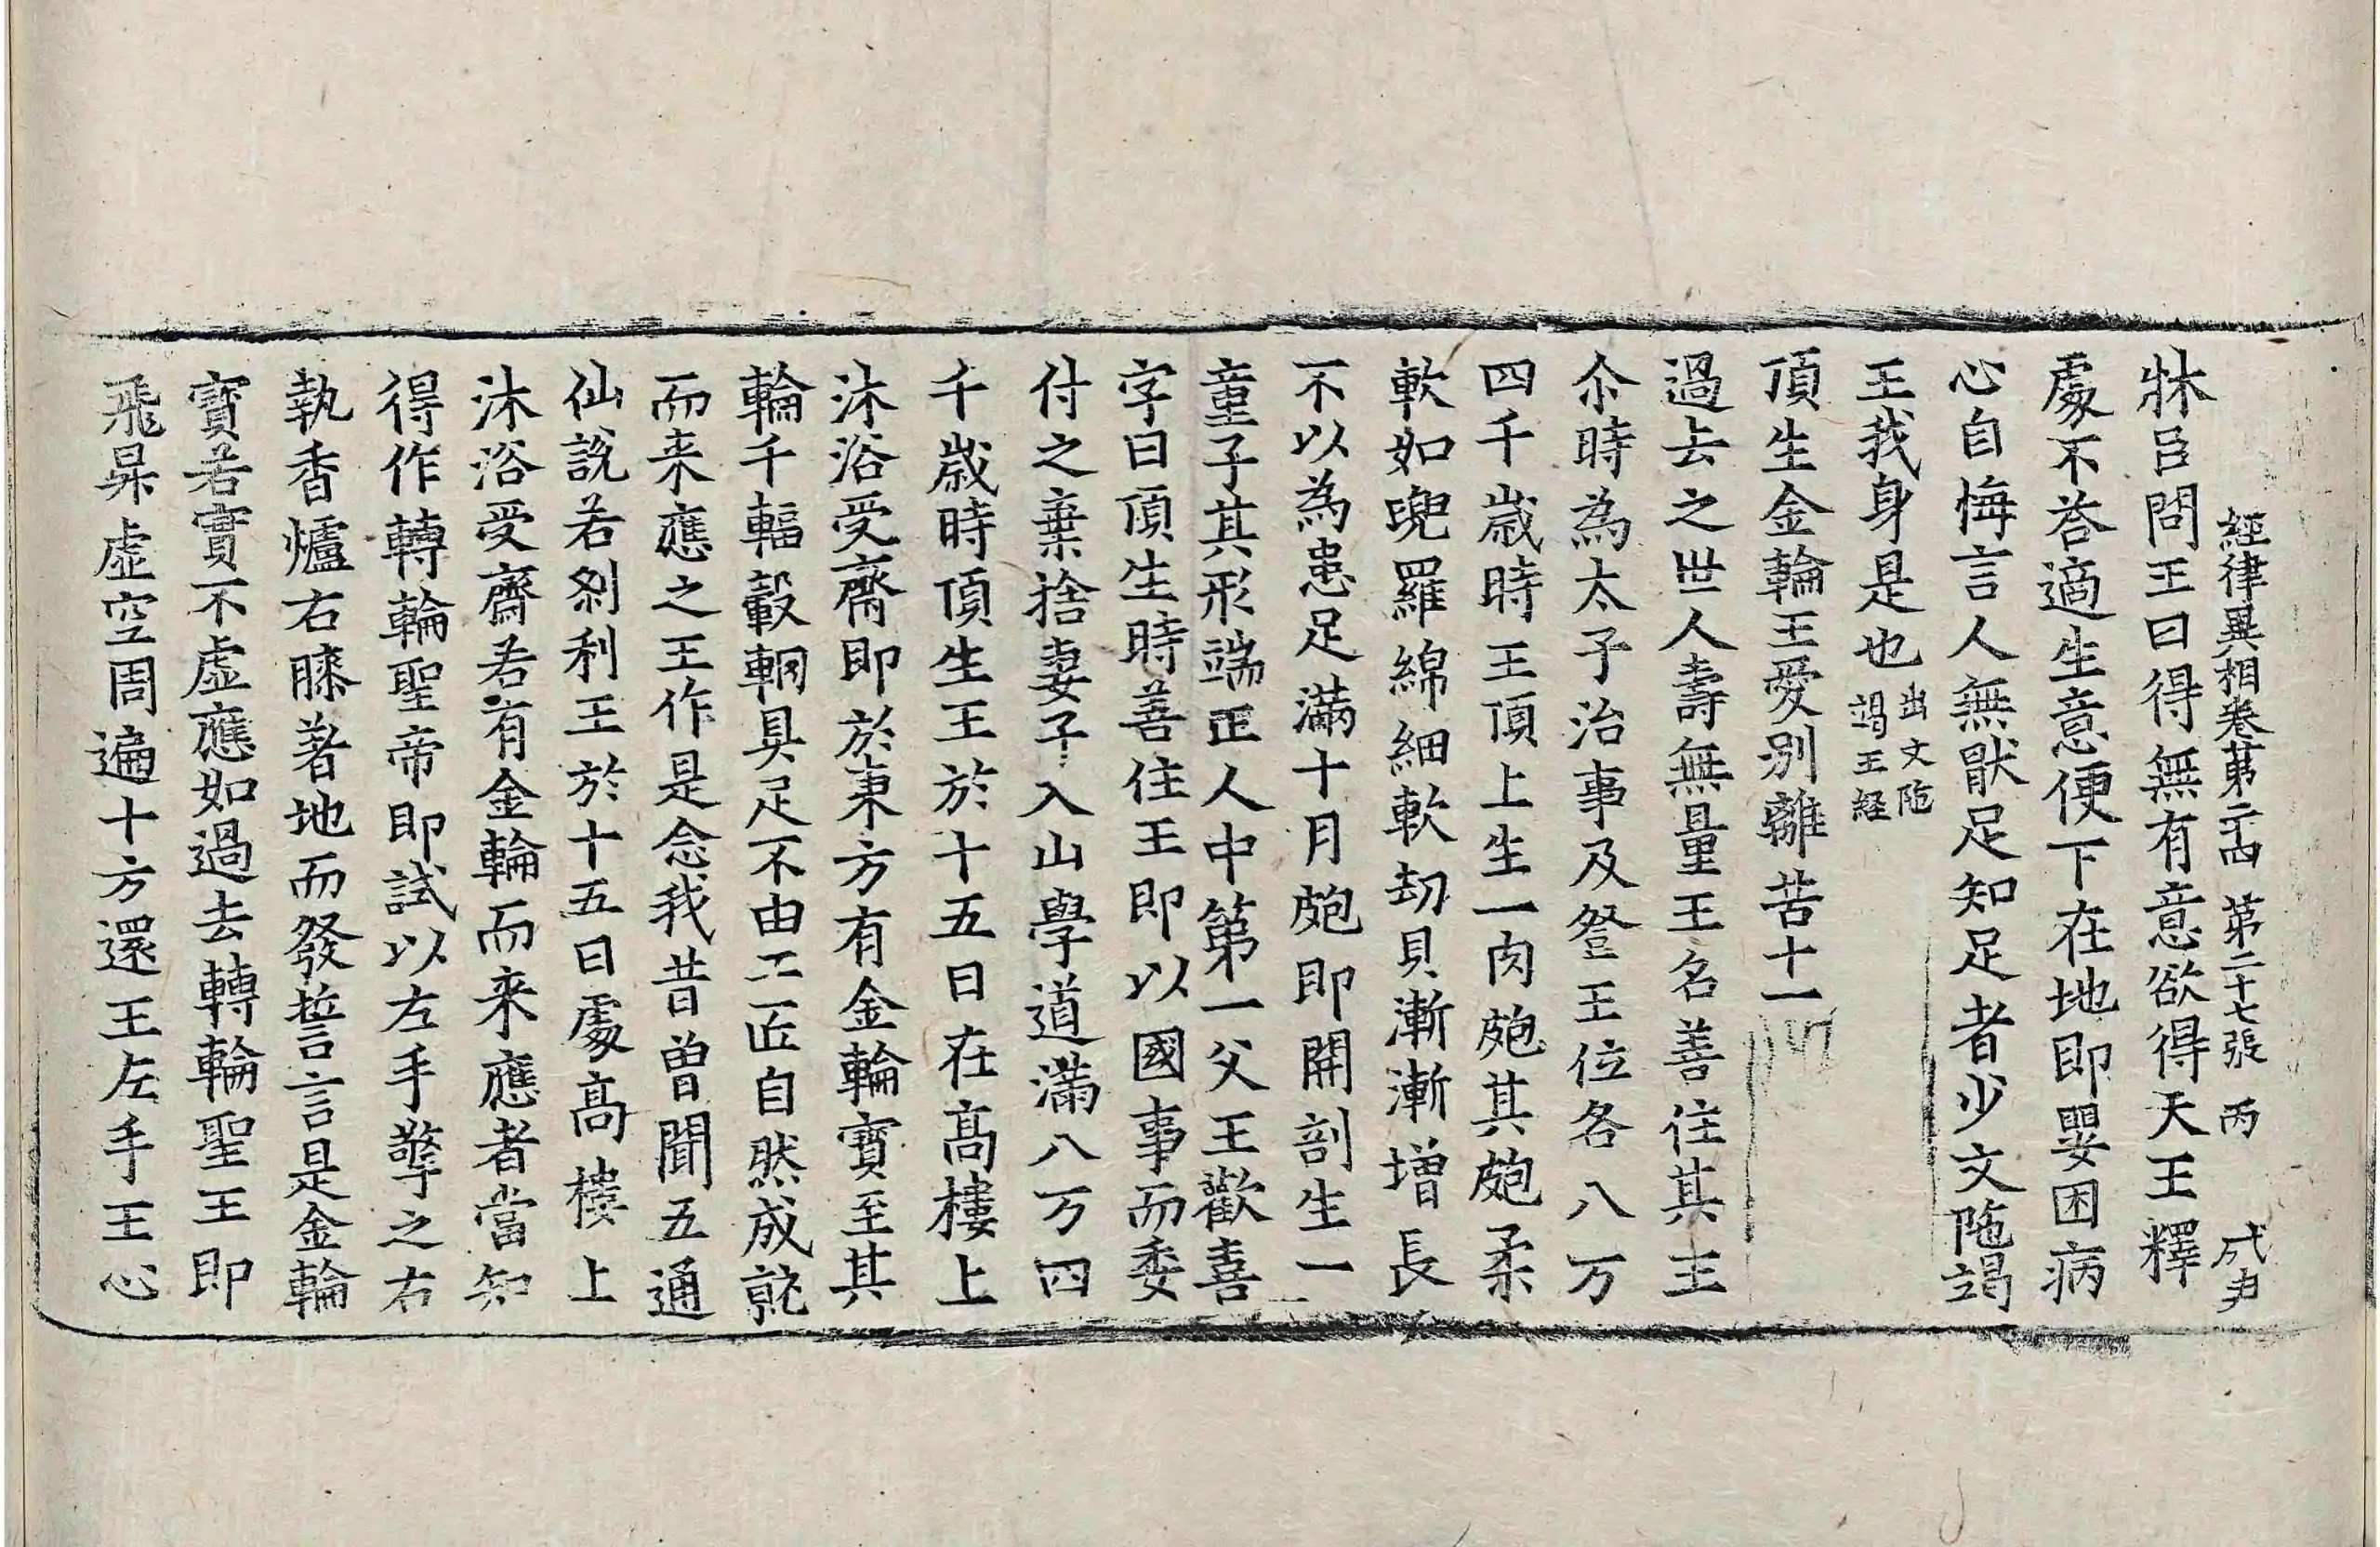 經律異相卷第二十四 第二十七張 丙 成尹
牀臣問王曰得無有意欲得天王釋
處不荅適生意便下在地即嬰困病
心自悔言人無猒足知足者少文陁竭
王我身是也出文陁竭王經
頂生金輪王愛別離苦十一
過去之世人壽無量王名善住其王
尒時為太子治事及登王位各八万
四千歲時王頂上生一肉皰其皰柔
軟如兜羅綿細軟劫貝漸漸增長
不以為患足滿十月皰即開剖生一
童子其形端正人中第一父王歡喜
字曰頂生時善住王即以國事而委
付之棄捨妻子入山學道滿八万四
千歲時頂生王於十五日在高樓上
沐浴受齋即於東方有金輪寶至其
輪千輻轂輞具足不由工匠自然成就
而来應之王作是念我昔曾聞五通
仙說若剎利王於十五日處高樓上
沐浴受齋若有金輪而来應者當知
得作轉輪聖帝即試以左手擎之右
執香爐右膝著地而發誓言是金輪
寶若實不虛應如過去轉輪聖王即
飛昇虛空周遍十方還王左手王心